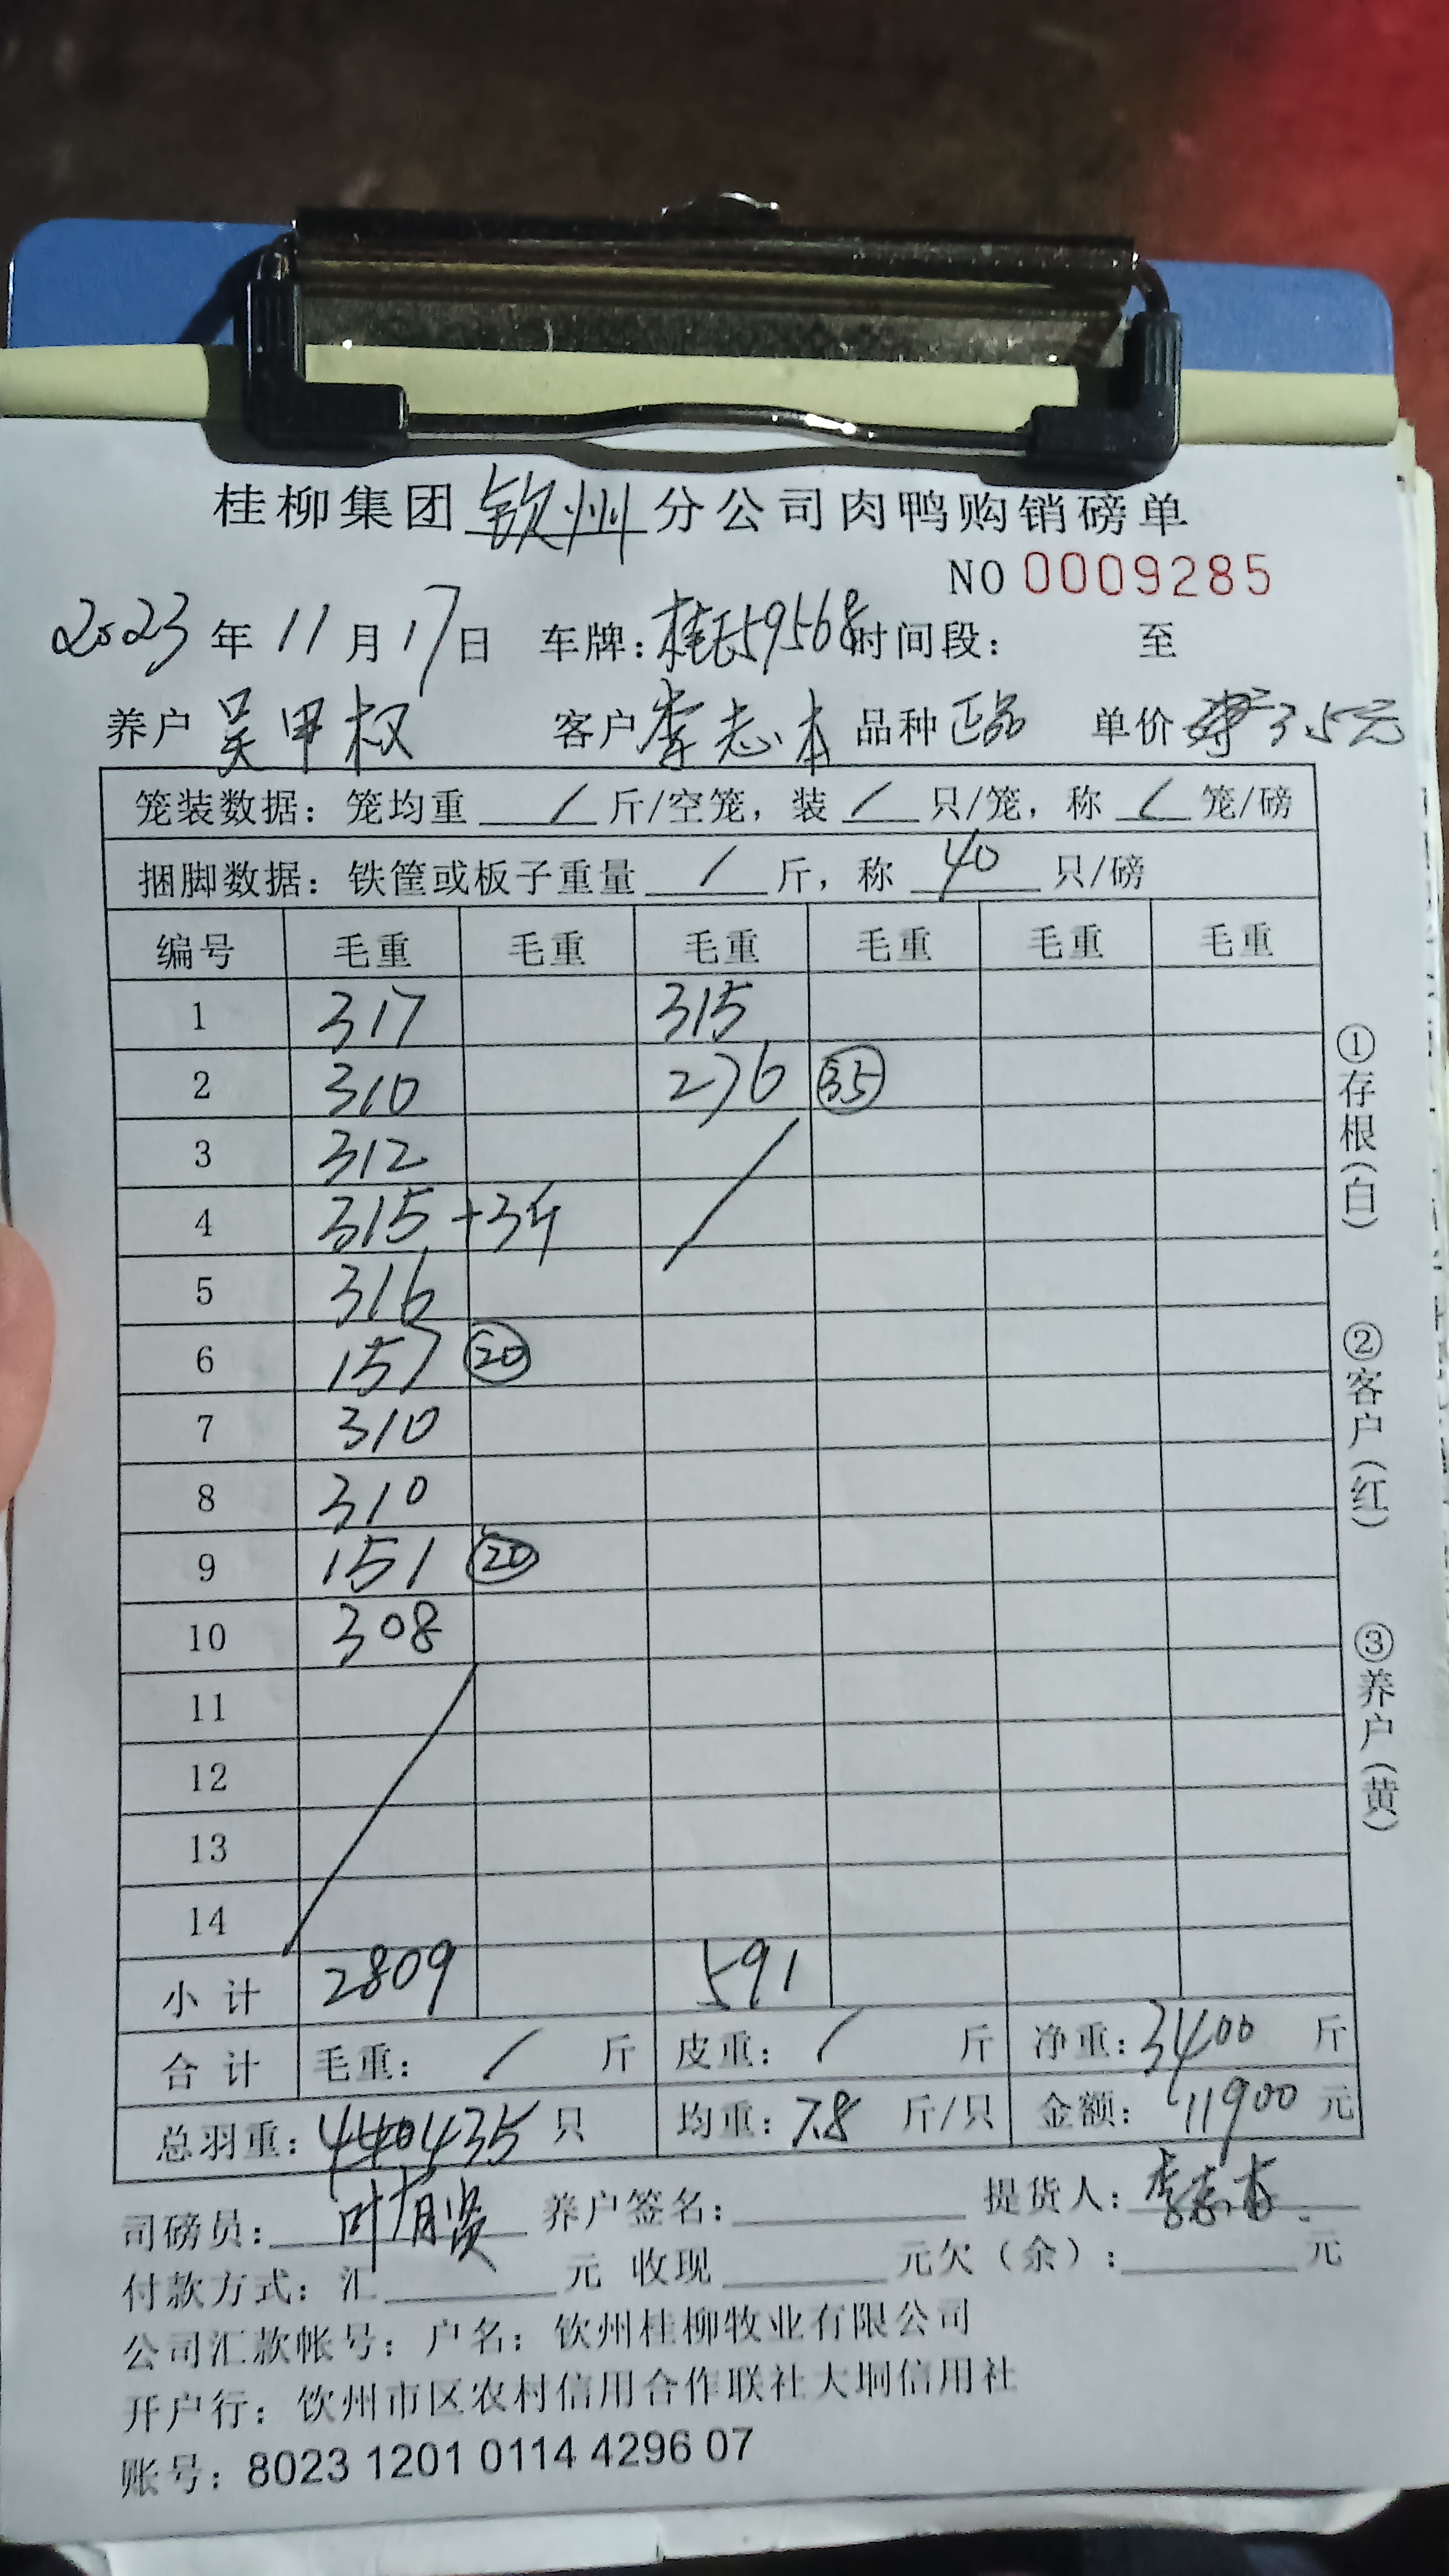 桂柳集团钦州分公司肉鸭购销磅单
NO 0009285
2023年11月17日 车牌:桂E59568时间段: 至
养户 吴甲权 客户 李志本 品种 正品 单价 3.5元
笼装数据: 笼均重 / 斤/空笼, 装 / 只/笼, 称 / 笼/磅
捆脚数据: 铁筐或板子重量 / 斤, 称 40 只/磅
编号 毛重 毛重 毛重 毛重 毛重 毛重
1 317 315
2 310 276 35
3 312
4 315 +3斤
5 316
6 157 20
7 310
8 310
9 151 20
10 308
11
12
13
14
小计 2809 591
合计 毛重: / 斤 皮重: / 斤 净重: 3400 斤
总羽重: 440 435 只 均重: 7.8 斤/只 金额: 11900 元
司磅员: 叶有贤 养户签名: 提货人: 李志本
付款方式: 汇 元 收现 元欠(余): 元
公司汇款帐号: 户名: 钦州桂柳牧业有限公司
开户行: 钦州市区农村信用合作联社大垌信用社
账号: 8023 1201 0114 4296 07
①存根(白)
②客户(红)
③养户(黄)